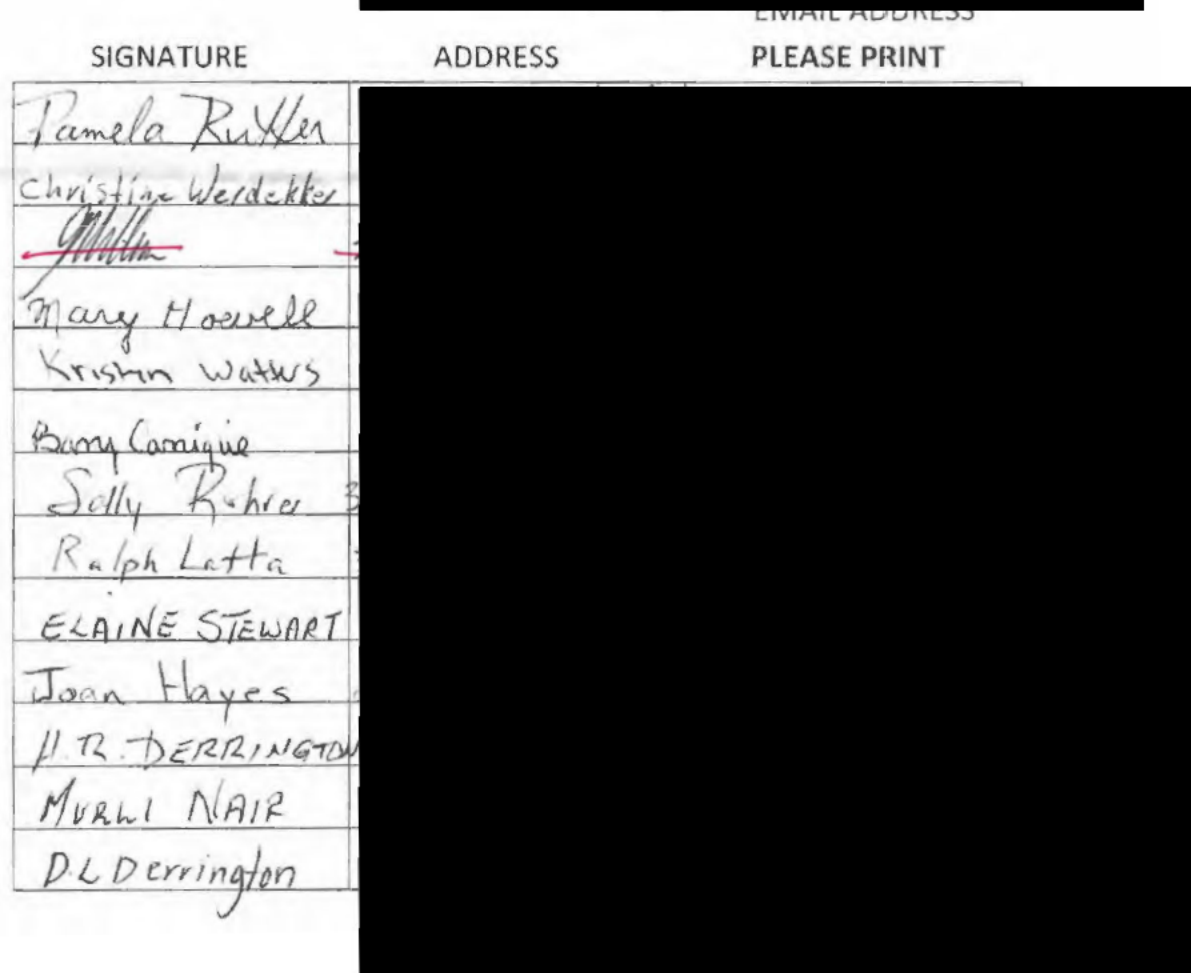 EMAIL ADDRESS
SIGNATURE ADDRESS PLEASE PRINT
Pamela Rutter
Christine Werdekker
Mary Howell
Kristin Watters
Barry Carrigue
Sally Rohrer 3
Ralph Latta
ELAINE STEWART
Joan Hayes
H.R. DERRINGTON
MURLI NAIR
D.L Derrington